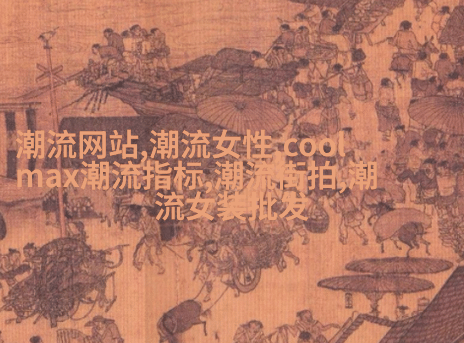 潮流网站,潮流女性,cool
max潮流指标,潮流街拍,潮
流女装批发